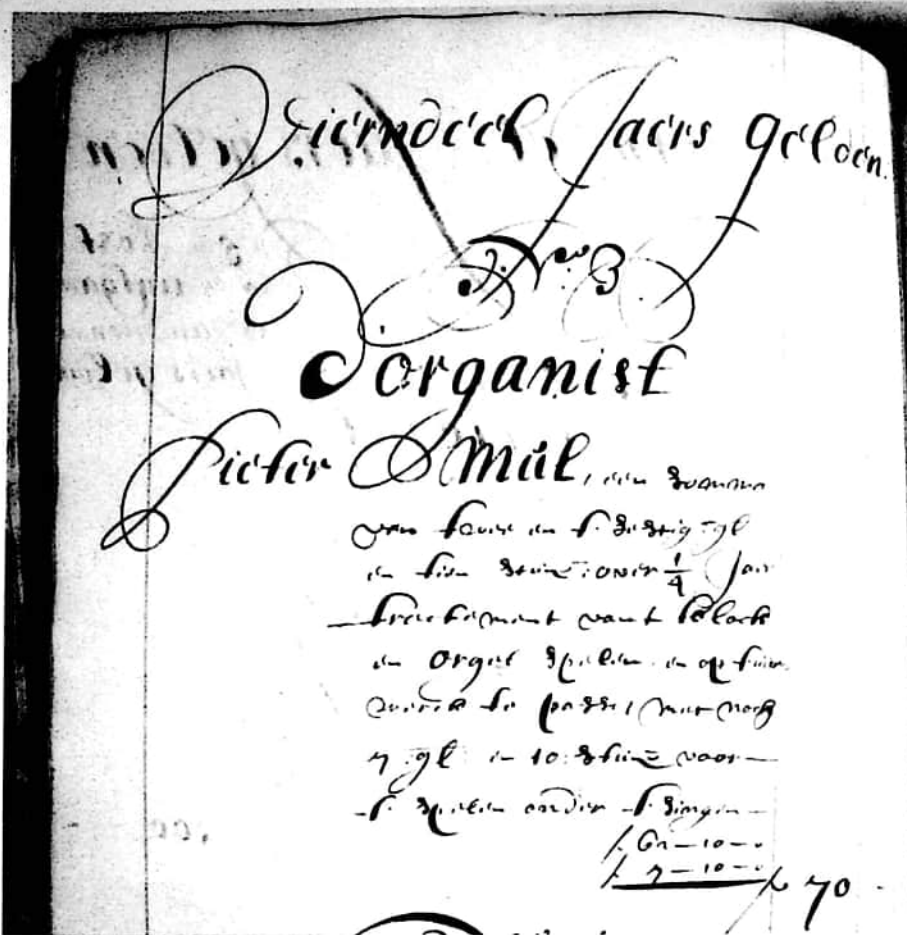 Vierndeel Jaers gelden.
No. 3
D'organist
Pieter Smal, een somme
van twee en t'sestig gl
en tien stuiv: over 1/4 Jaer
tractement vant klock
en orgel spelen en op
werck te passe, met noch
7 gl en 10 stuiv voor
t' spelen onder t' singen
f. 62-10-0
f. 7-10-0
f 70